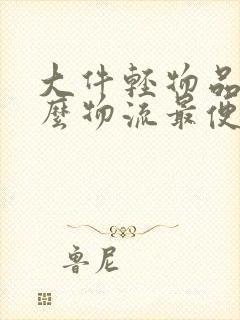 大件轻物品
麼物流最便
鲁尼